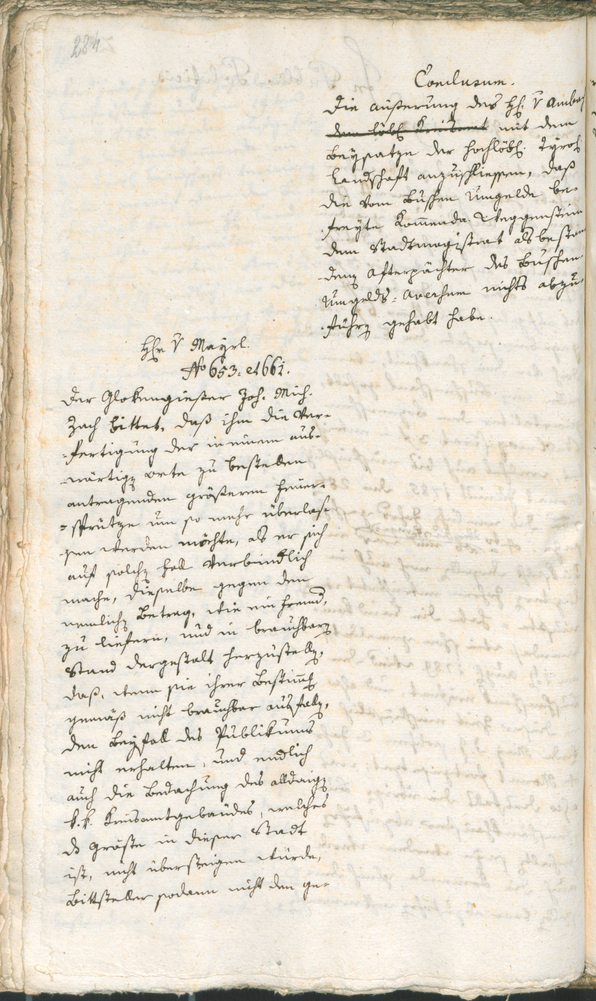 284
Conclusum.
Die äußerung des H. v
dem löbl. Kreisamt mit dem
Beysatze der hochlöbl. Tyrol.
Landschaft anzuschliessen, daß
die vom Umgelde be-
freyte Kommenda Weggenstein
dem Stadtmagistrat als
dem Afterpächter des
Umgelds-Averhum nichts abzu-
führen gehabt habe.
H. v Mayrl.
No 653. et 661.
Der Glokengiesser Joh. Mich.
Zach bittet, daß ihm die Ver-
fertigung der in einem aus-
wärtigen orte zu bestellen
antragenden größeren Feuer-
sprütze um so mehr überlas-
sen werden möchte, als er sich
auf solchen fall verbindlich
mache, dieselbe gegen den
nemlichen Betrag, wie ein fremd,
zu liefern, und in brauchbaren
Stand dergestalt herzustellen,
daß, wenn sie ihrer Bestimmg
gemäß nicht brauchbar ausfallen,
den Beyfall des Publikums
nicht erhalten, und endlich
auch die Bedachung des alldaigen
k. k. Kreisamtgebäudes, welches
die größte in dieser Stadt
ist, nicht übersteigen würde,
Bittsteller sodann nicht den ge-